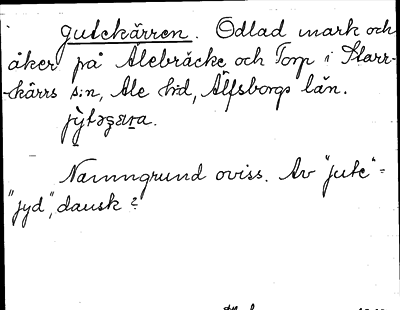 gutekärren. Odlad mark och
åker på Alebräcke och Torp i Starr-
kärrs s:n, Ale hd, Älfsborgs län.
Namngrund oviss. Av "jute" =
"jyd", dansk?